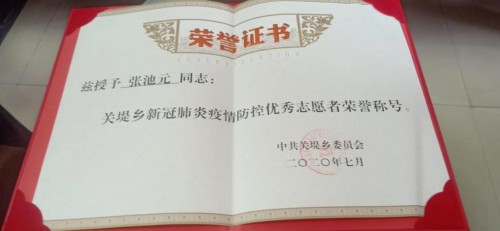 荣誉证书
兹授予 张池元 同志：
关堤乡新冠肺炎疫情防控优秀志愿者荣誉称号。
中共关堤乡委员会
二〇二〇年七月